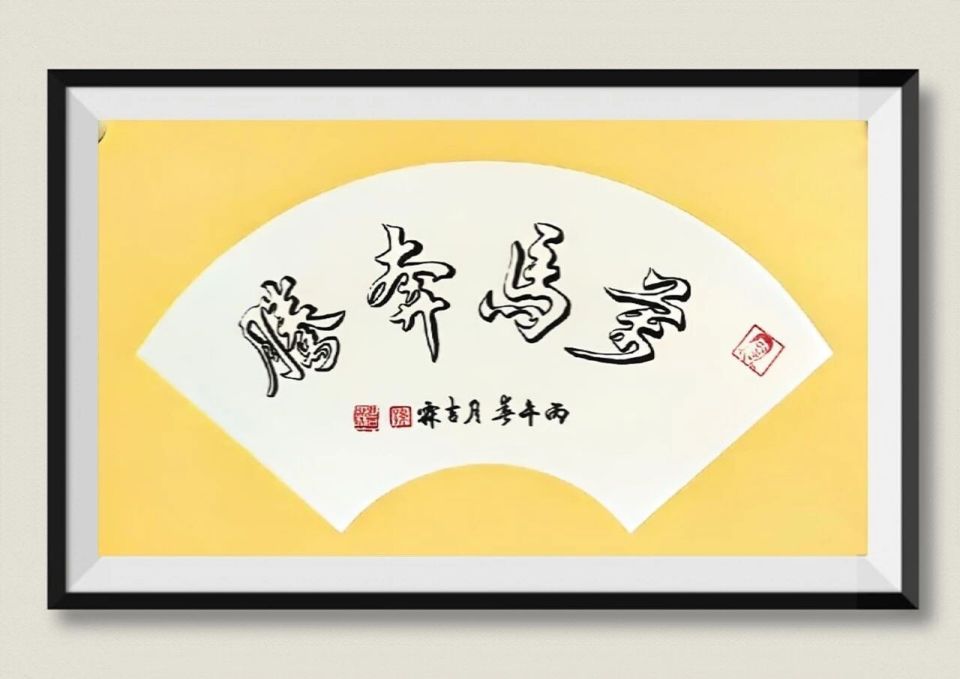 萬馬奔騰
丙午春月吉霖